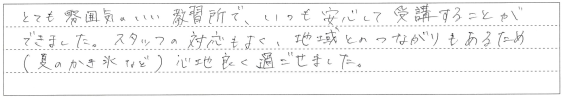 とても雰囲気のいい教習所で、いつも安心して受講することが
できました。スタッフの対応もよく、地域とのつながりもあるため
(夏のかき氷など)心地良く過ごせました。